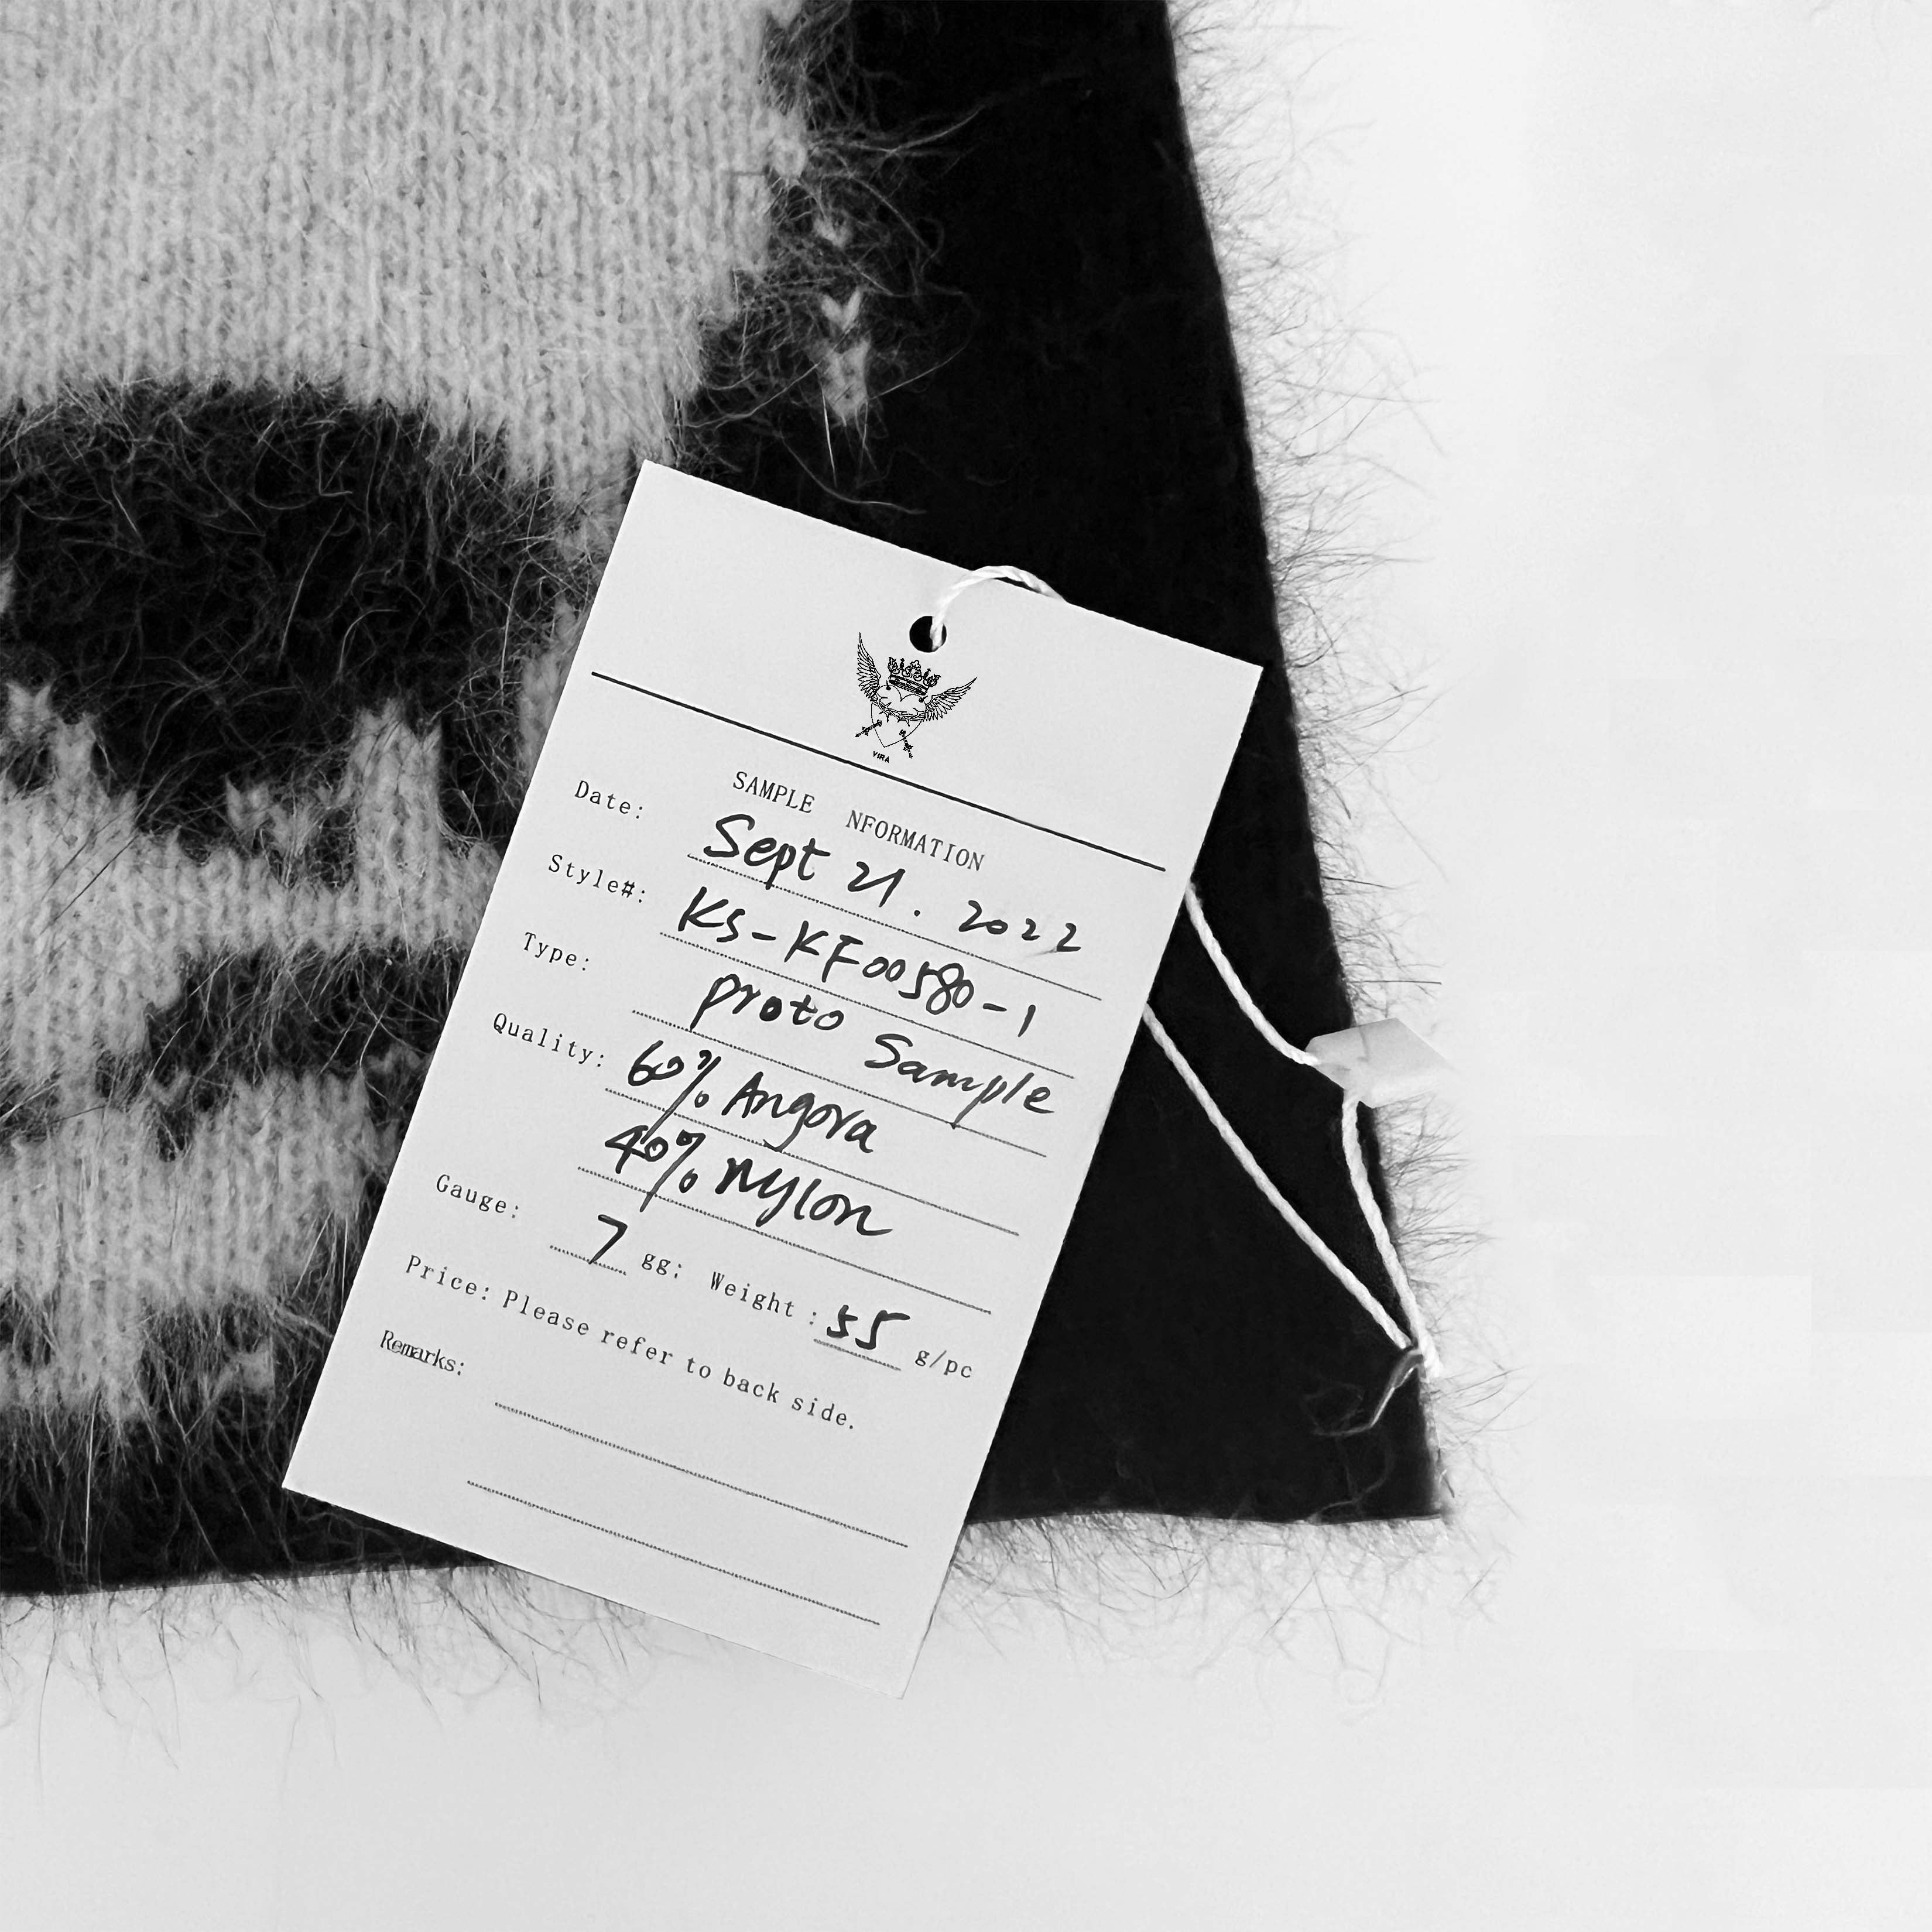 VIRA
SAMPLE NFORMATION
Date: Sept 21. 2022
Style#: KS-KF00580-1
Type: proto Sample
Quality: 60% Angora
40% nylon
Gauge: 7 gg; Weight: 55 g/pc
Price: Please refer to back side.
Remarks: